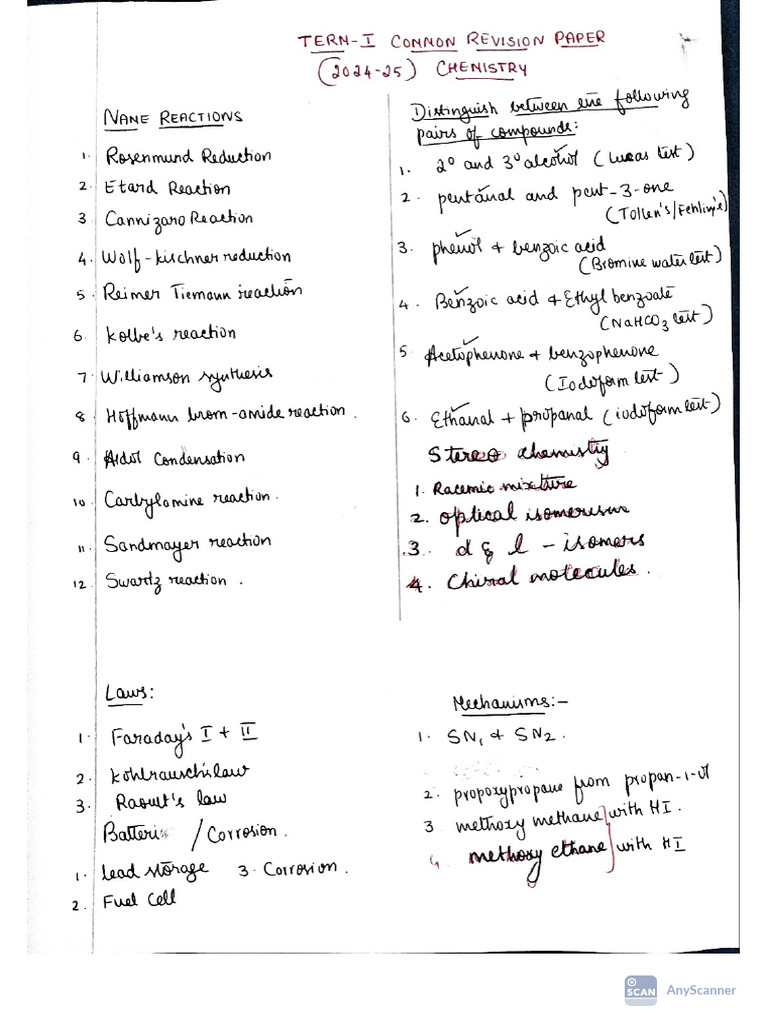 TERM-I COMMON REVISION PAPER
(2024-25) CHEMISTRY
NAME REACTIONS
1. Rosenmund Reduction
2. Etard Reaction
3 Cannizaro Reaction
4. Wolf-kischner reduction
5. Reimer Tiemann reaction
6. Kolbe's reaction
7. Williamson synthesis
8. Hoffmann brom-amide reaction.
9. Aldol Condensation
10. Carbylamine reaction.
11. Sandmayer reaction
12. Swartz reaction.
Distinguish between the following
pairs of compounds:
1. 2° and 3° alcohol (Lucas test)
2. pentanal and pent-3-one
(Tollen's/Fehling's)
3. phenol + benzoic acid
(Bromine water test)
4. Benzoic acid & Ethyl benzoate
(NaHCO3 test)
5 Acetophenone & benzophenone
(Iodoform test)
6. Ethanal + propanal (iodoform test)
Stereo chemistry
1. Racemic mixture
2. optical isomerism
3. d & l - isomers
4. Chiral molecules.
Laws:
1. Faraday's I + II
2. Kohlrausch's law
3. Raoult's law
Batteri /Corrosion.
1. lead storage 3. Corrosion.
2. Fuel Cell
Mechanisms:-
1. SN1 & SN2.
2. propoxypropane from propan-1-ol
3 methoxy methane with HI.
4. methoxy ethane with HI
SCAN AnyScanner